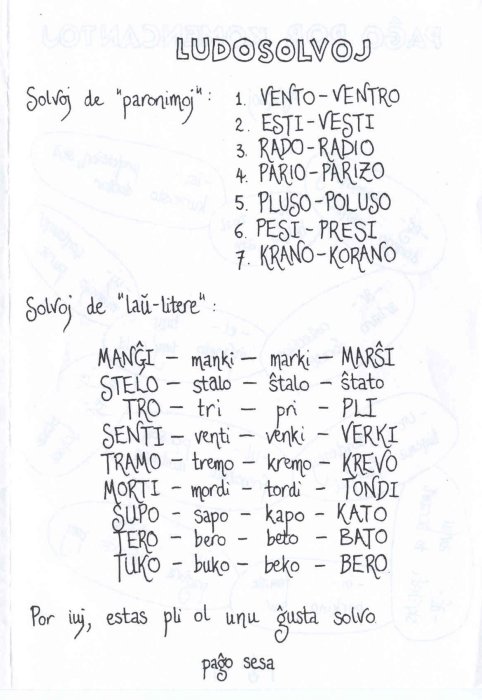 LUDOSOLVOJ
Solvoj de "paronimoj":
1. VENTO-VENTRO
2. ESTI-VESTI
3. RADO-RADIO
4. PARIO-PARIZO
5. PLUSO-POLUSO
6. PESI-PRESI
7. KRANO-KORANO
Solvoj de "laŭ-litere":
MANĜI - manki - marki - MARŜI
STELO - stalo - ŝtalo - ŝtato
TRO - tri - pri - PLI
SENTI - venti - venki - VERKI
TRAMO - tremo - kremo - KREVO
MORTI - mordi - tordi - TONDI
SUPO - sapo - kapo - KATO
TERO - bero - beto - BATO
TUKO - buko - beko - BERO
Por iuj, estas pli ol unu ĝusta solvo
paĝo sesa